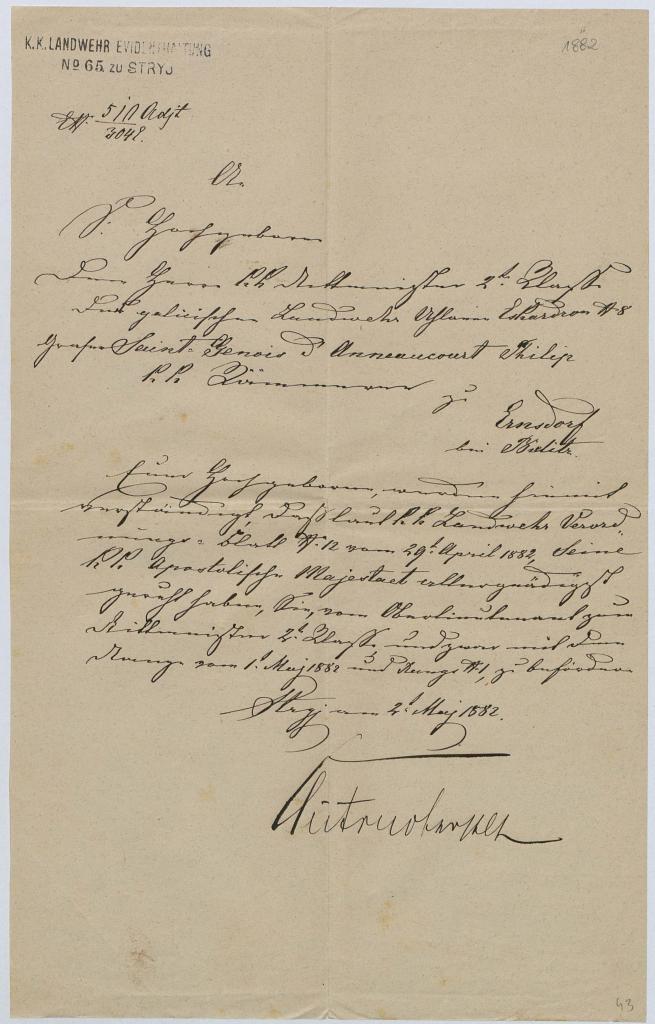 K.K. LANDWEHR EVIDENTHALTUNG
№ 65 ZU STRYJ
1882
51/1 Adjt
3048.
An
S: Hochgeboren
Dem Herrn k.k. Rittmeister 2ter Classe
der galicischen Landwehr Uhlanen Eskadron № 8
Grafen Saint-Genois d'Anneaucourt Philip
k.k. Kämmerer
zu
Ernsdorf
bei Bielitz
Euer Hochgeboren, werden hiemit
verständigt, daß laut k.k. Landwehr Verord=
nungs=Blatt № 12 vom 29t April 1882, Seine
k.k. Apostolische Majestaet allergnädigst
geruht haben, Sie, vom Oberlieutenant zum
Rittmeister 2t Classe, und zwar mit dem
Range vom 1t Maj 1882 und Rangs № 1, zu befördern
Stryj am 2t Maj 1882.
43